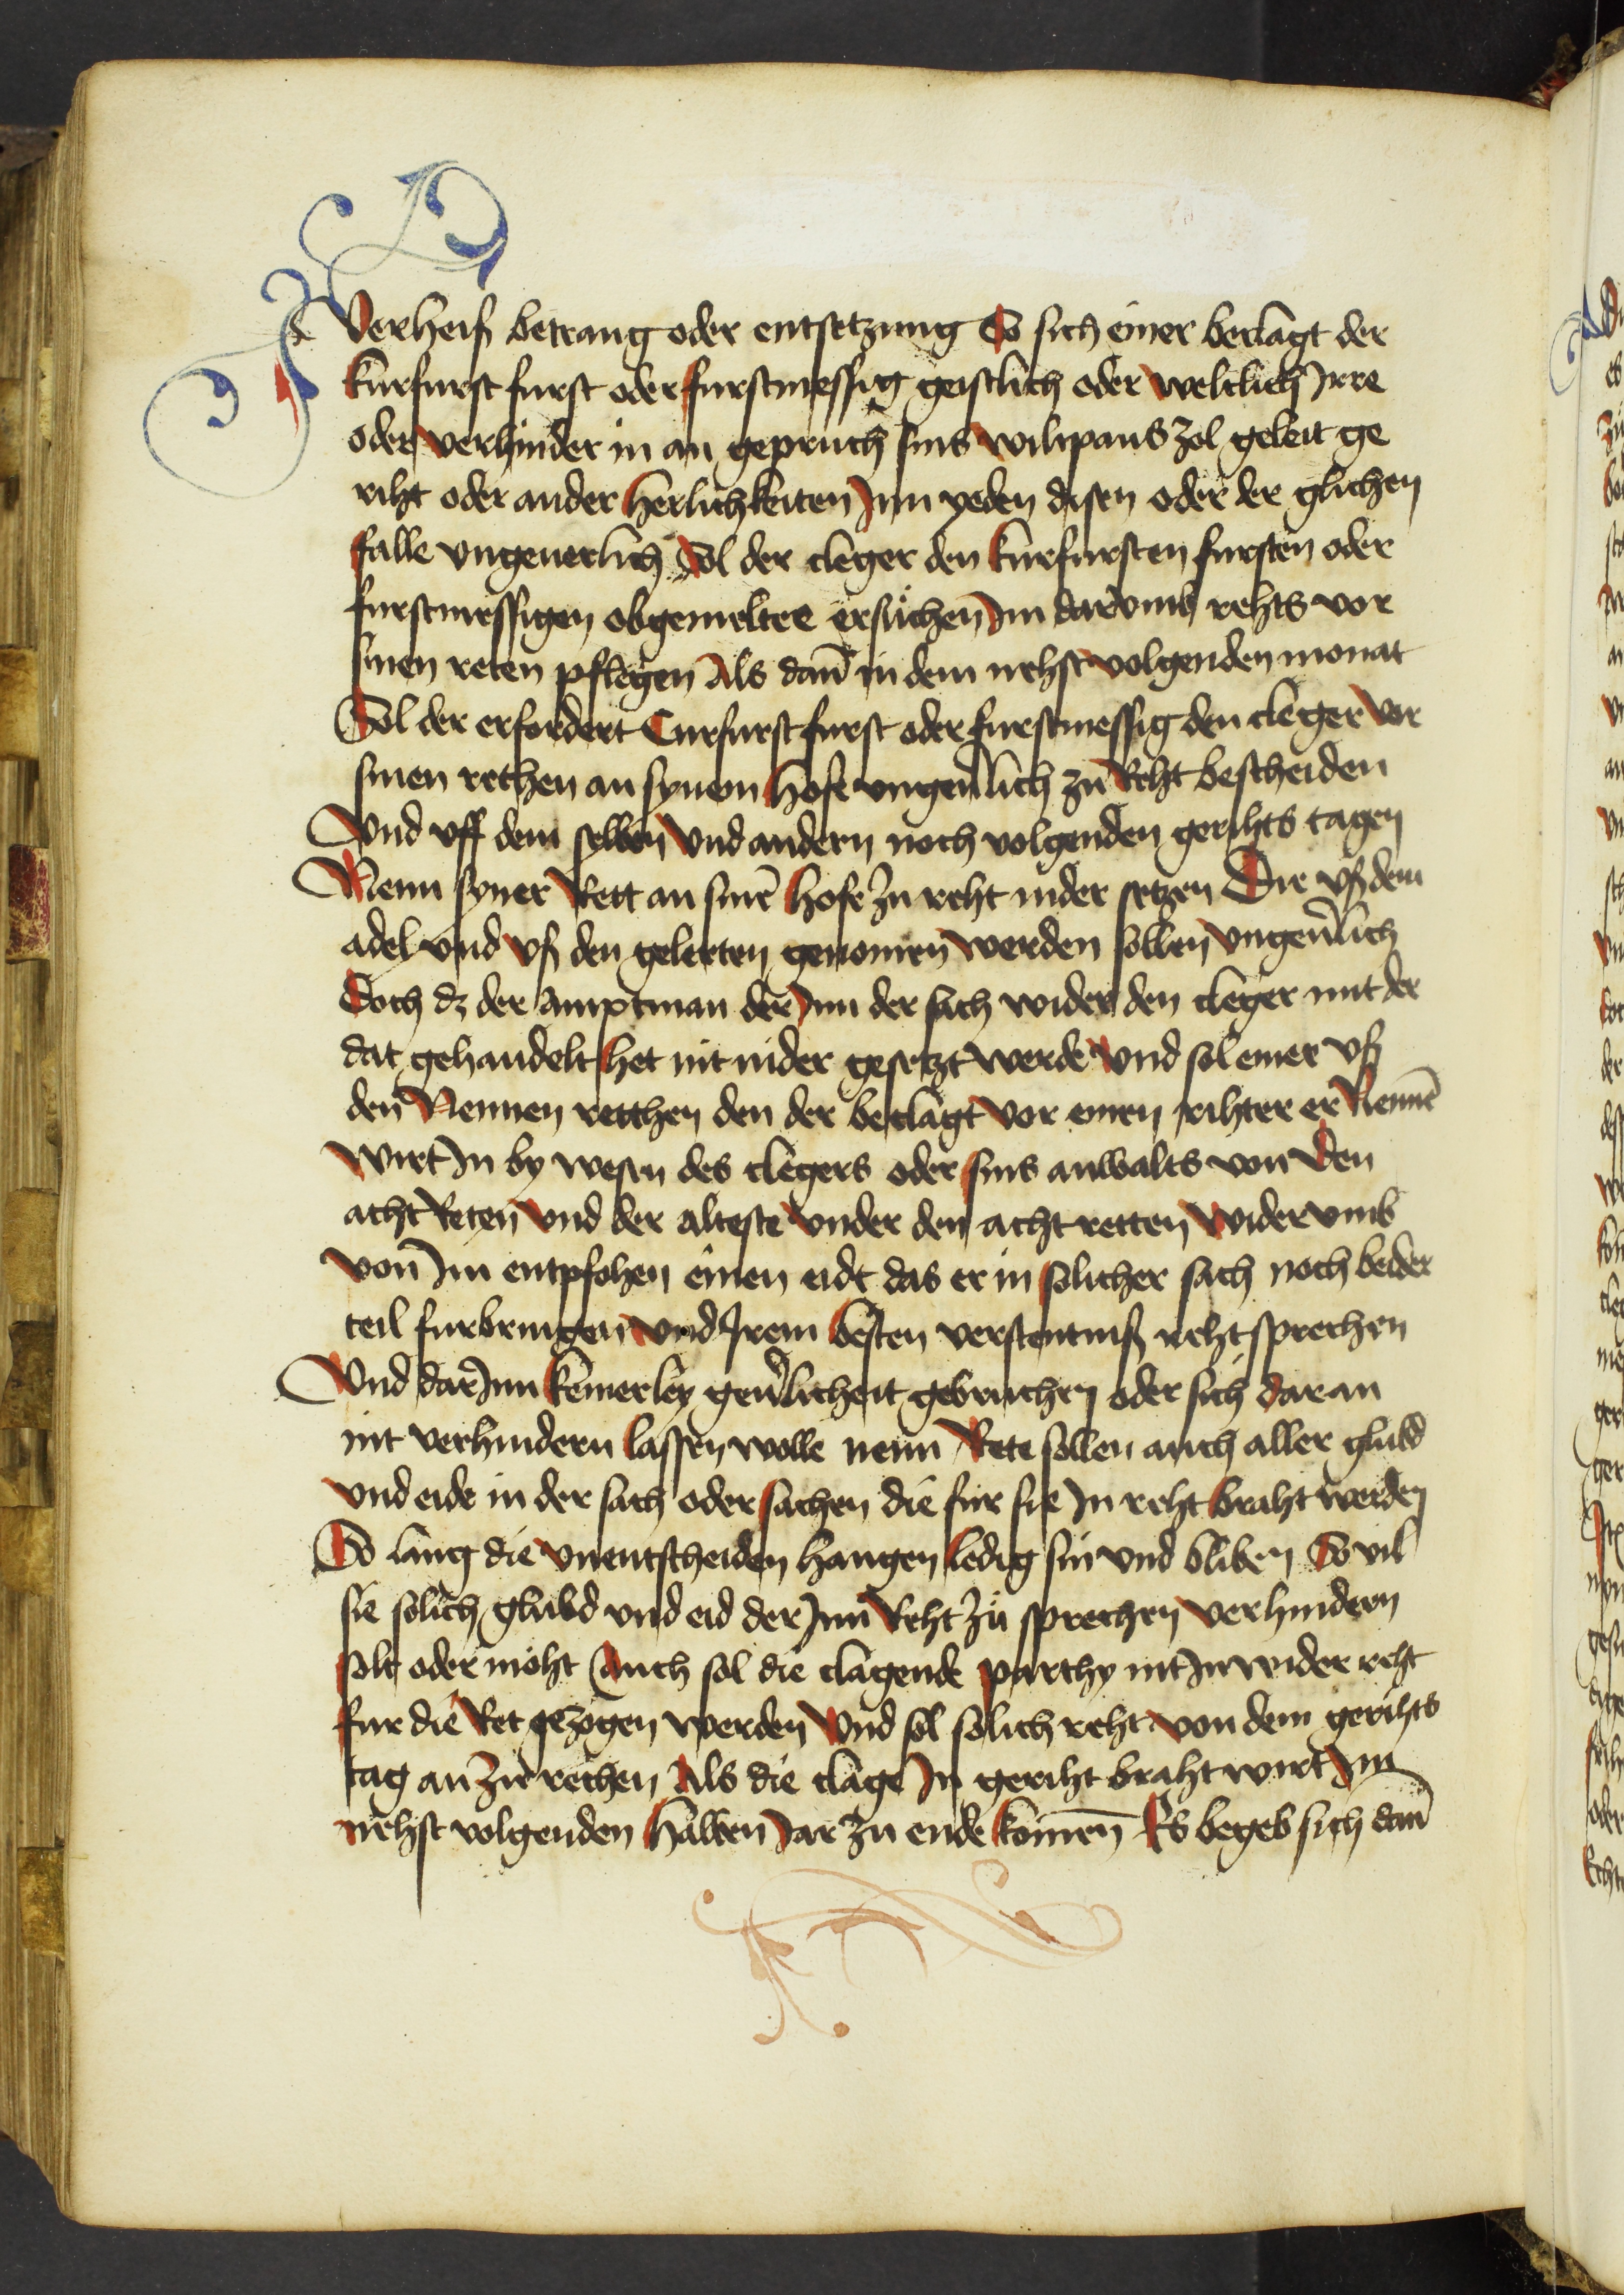 Verheiß betrang oder entsetzung So sich einer beclagt der
kurfurst furst oder furstmessig geistlich oder weltlich Irre
oder verhinder in an gepruch sins wiltpans zol geleit ge
riht oder ander herlichkeiten Inn yeden disen oder der glichen
falle vngeuerlich Sol der cleger den kurfursten fursten oder
furstmessigen obgemelter ersuchen Im darvmb rehts vor
sinen reten pflegen Als dañ in dem nehst volgenden monat
Sol der erfordert Curfurst furst oder furstmessig den cleger vor
sinen rethen an synem hofe vngeuͤlich zu Reht bescheiden
Vnd vff dem selben vnd andern noch volgenden gerihts tagen
Nenn syner Rett an sinē hofe zu reht nider setzen Die vß dem
adel vnd vß den gelerten genomen werden sollen vngeuͤlich
Doch dz der amptman der Inn der sach wider den cleger mit der
dat gehandelt het nit nider gesetzt werde Vnd sol einer vß
den Nennen retthen den der beclagt vor einen rihter er Nennē
wirt In by wesen des clegers oder sins anwalts von den
acht Reten vnd der alteste vnder den acht retten widervmb
von Im entpfohen einen eidt das er in solicher sach noch beider
teil furbringen vnd Irem besten verstentniß reht sprechen
Vnd dar Inn keinerley geuͤlicheit gebruchen oder sich dar an
nit verhindern lassen wolle nenn Rete sollen auch aller glubd
vnd eide in der sach oder sachen die fur sie In reht braht werden
So lang die vnentscheiden hangen ledig sin vnd bliben So vil
sie solich glubd vnd eid der Inn Reht zu sprechen verhindern
solt oder moht Auch sol die clagende parthy nit In wider reht
fur die Ret gezogen werden Vnd sol solich reht von dem gerihts
tag an zu rechen Als die clage In geriht braht wirt Im
nehst volgenden halben Jar zu ende komen̄ Es begeb sich dañ